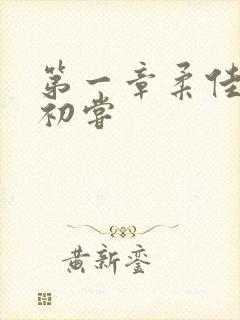 第一章柔佳
初尝
黄新銮